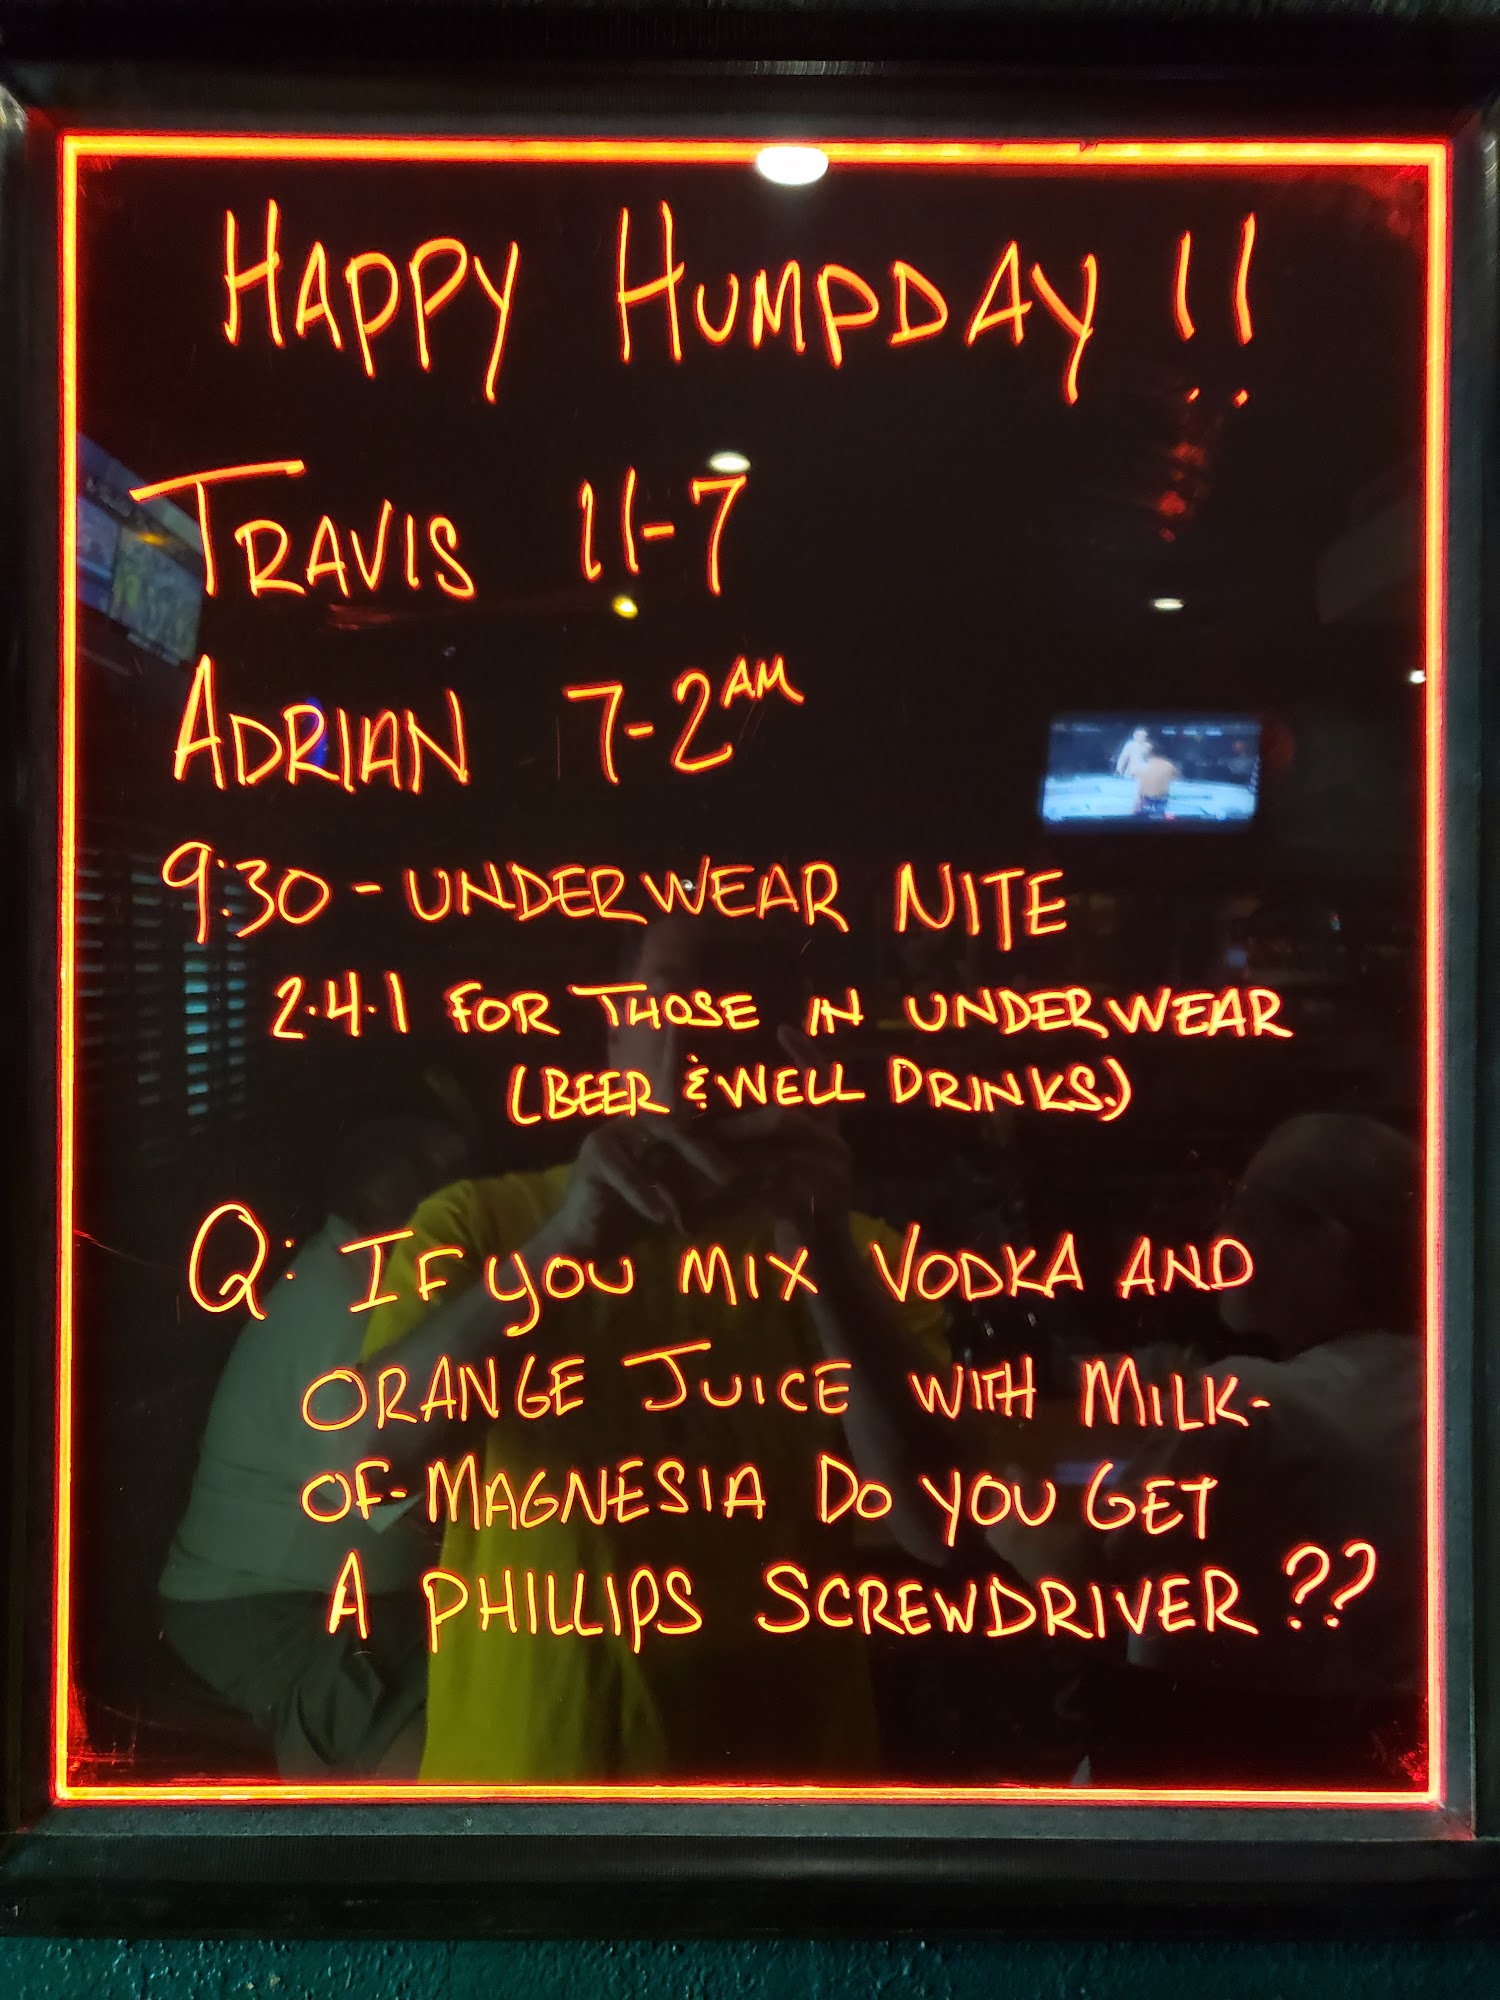 HAPPY HUMPDAY !!
TRAVIS 11-7
ADRIAN 7-2AM
9:30 - UNDERWEAR NITE
2·4·1 FOR THOSE IN UNDERWEAR
(BEER & WELL DRINKS.)
Q: IF YOU MIX VODKA AND
ORANGE JUICE WITH MILK-
OF-MAGNESIA DO YOU GET
A PHILLIPS SCREWDRIVER ??